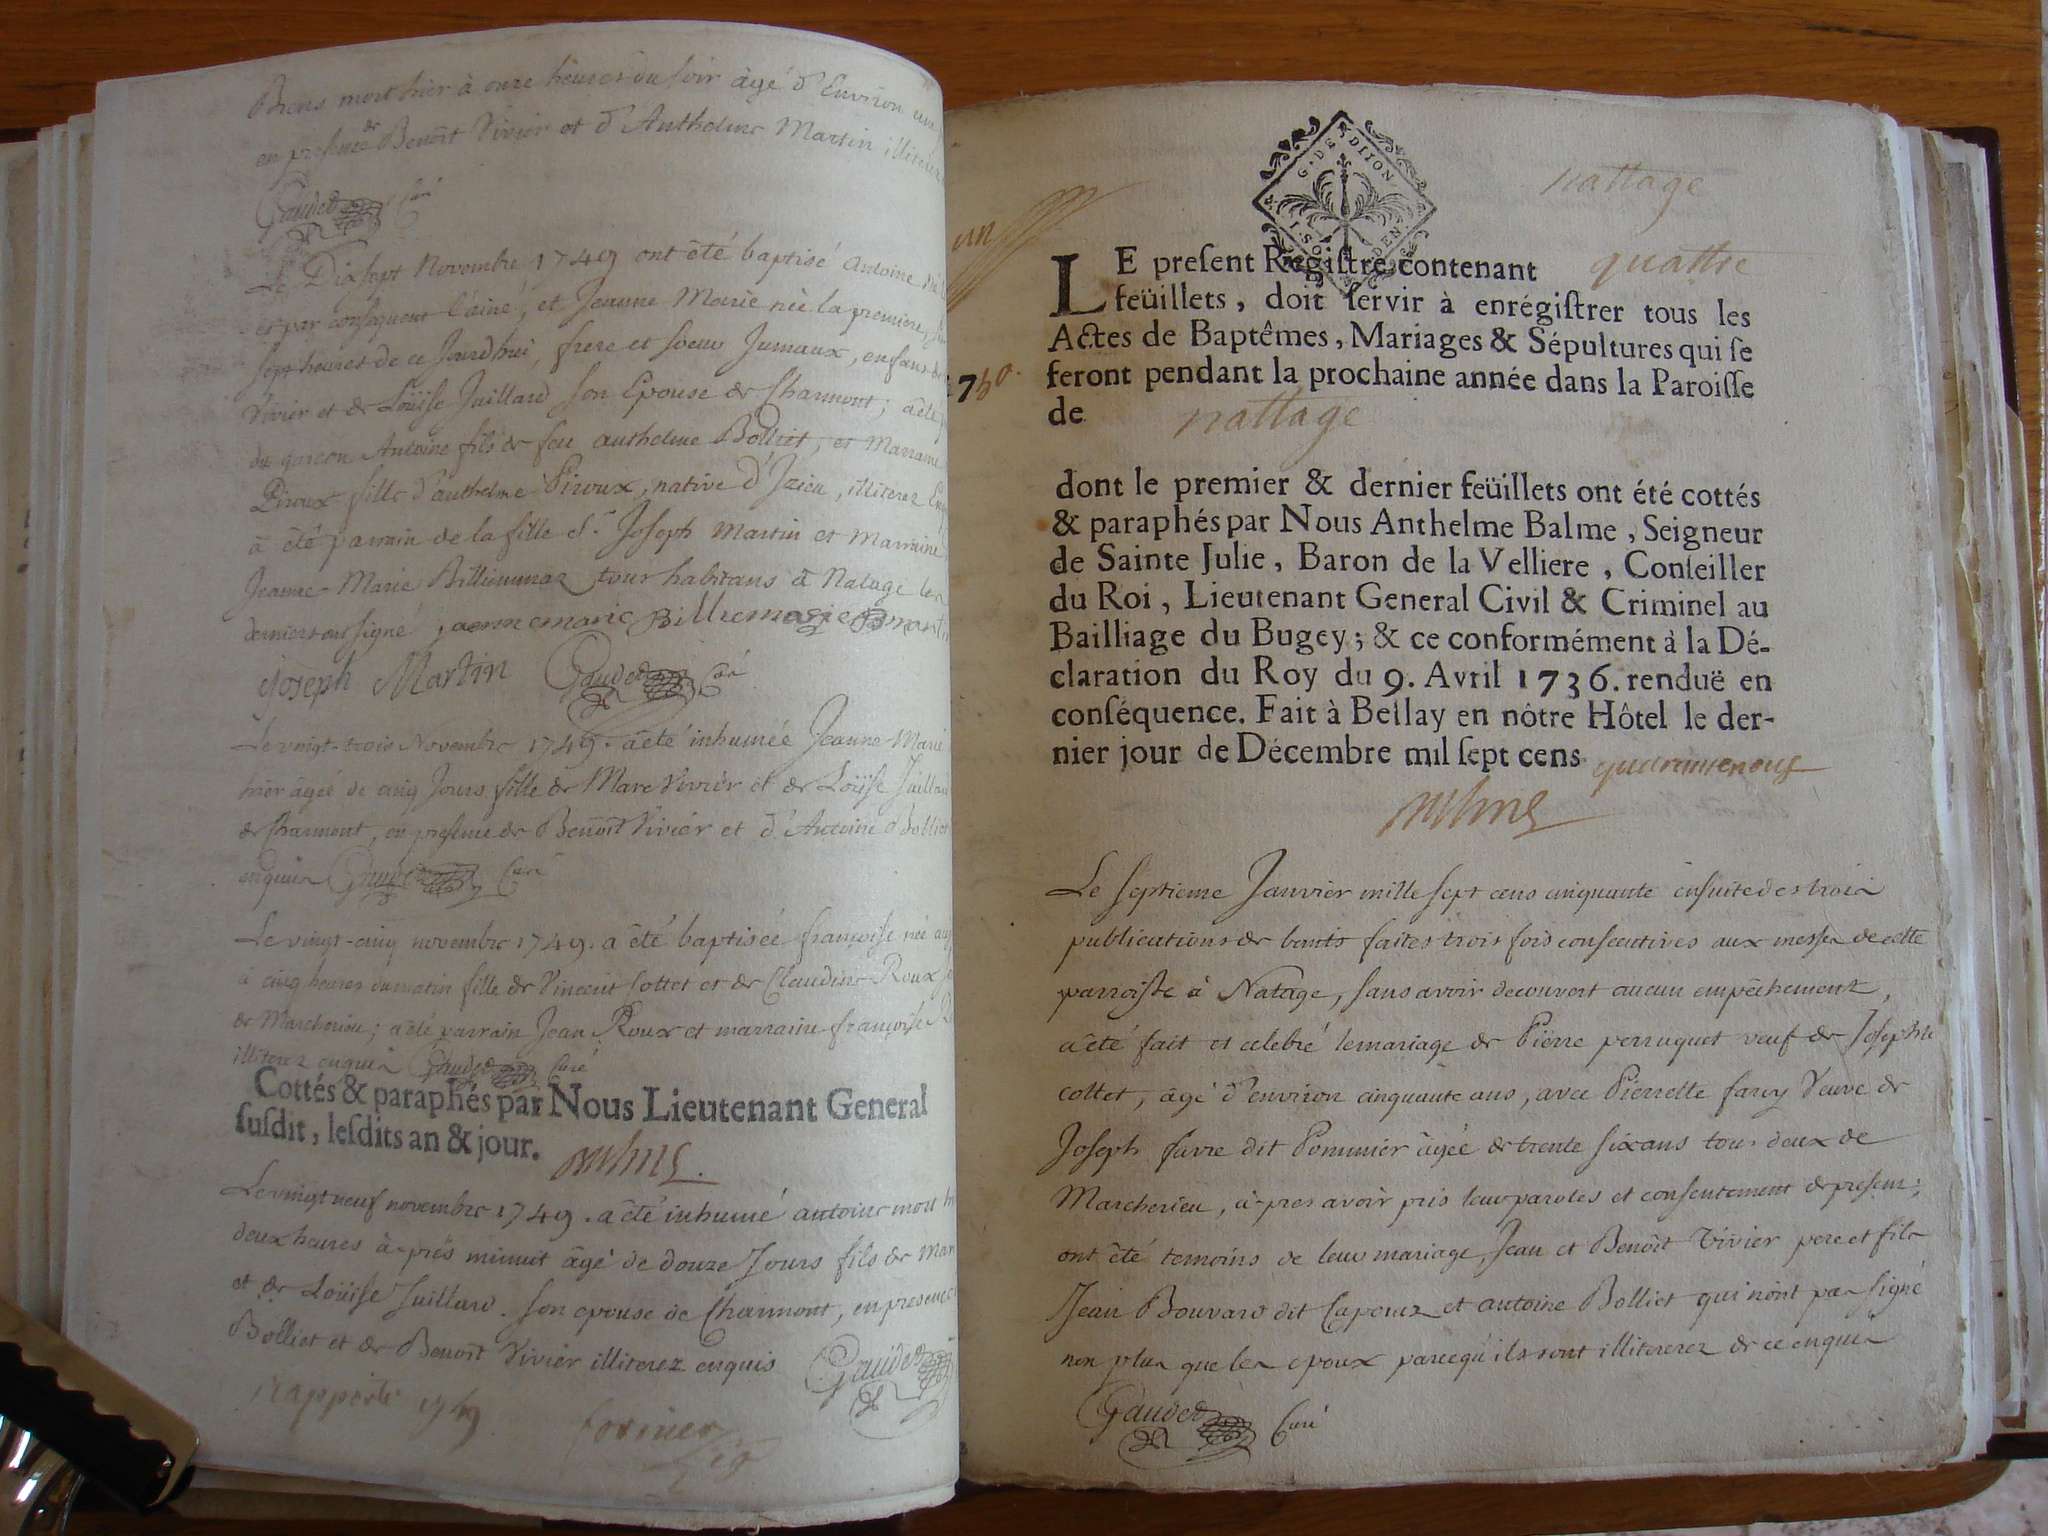 Biens mort hier à onze heures du soir âgé d'Environ
en presence de Benoît Vivier et d'Anthelme Martin
Gaudet Curé
Le Dix sept Novembre 1749 ont été baptisé Antoine
et par consequent l'ainé, et Jeanne Marie née la premiere,
sept heures de ce Jourdhui, frere et soeur Jumaux, enfans de
Vivier et de Loüise Juillard son Epouse de Charmont; a été
du garcon Antoine fils de feu anthelme Bolliet, et Marraine
Piroux fille d'anthelme Piroux, native d'Izieu, illiterez
à été parrain de la fille Sr. Joseph Martin et Marraine
Jeanne-Marie Billiemaz tous habitans à Natage les
derniers ont signé,
Joseph Martin Gaudet Curé
Le vingt-trois Novembre 1749. a été inhumée Jeanne-Marie
hier âgée de cinq Jours fille de Marc Vivier et de Loüise Juillard
de Charmont, en presence de Benoît Vivier et d'Antoine Bolliet
enquis Gaudet Curé
Le vingt-cinq novembre 1749. a été baptisée françoise née
à cinq heures du matin fille de Vincent Cottet et de Claudine Roux
de Marcherieu; a été parrain Jean Roux et marraine françoise
illiterez enquis Gaudet Curé
Cottés & paraphés par Nous Lieutenant General
susdit, lesdits an & jour.
Le vingt neuf novembre 1749. a été inhumé antoine mort
deux heures à-prés minuit âgé de douze Jours fils de
et de Loüise Juillard. son epouse de Charmont, en presence
Bolliet et de Benoît Vivier illiterez enquis Gaudet
1749
G. DE DIJON
nattage
un
LE present Registre contenant quattre
feüillets, doit servir à enrégistrer tous les
Actes de Baptêmes, Mariages & Sépultures qui se
feront pendant la prochaine année dans la Paroisse
de nattage
1750.
dont le premier & dernier feüillets ont été cottés
& paraphés par Nous Anthelme Balme, Seigneur
de Sainte Julie, Baron de la Velliere, Conseiller
du Roi, Lieutenant General Civil & Criminel au
Bailliage du Bugey; & ce conformément à la Dé-
claration du Roy du 9. Avril 1736. renduë en
conséquence. Fait à Bellay en nôtre Hôtel le der-
nier jour de Décembre mil sept cens quaranteneuf
Le septieme Janvier mille sept cens cinquante ensuite des trois
publications de bants faites trois fois consecutives aux messes de cette
parroisse à Natage, sans avoir decouvert aucun empêchement,
a été fait et celebré le mariage de Pierre perruquet veuf de Josephte
cottet, âgé d'environ cinquante ans, avec Pierrette favry Veuve de
Joseph favre dit Pommier âgée de trente six ans tous deux de
Marcherieu, à-pres avoir pris leur paroles et consentement de present;
ont été temoins de leur mariage, Jean et Benoît Vivier pere et fils
Jean Bouvard dit Capouz et antoine Bolliet qui n'ont pas signé
non plus que les epoux parcequ'ils sont illitererez de ce enquis
Gaudet Curé